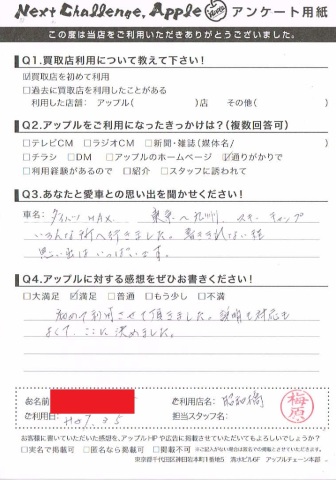 Next Challenge, Apple アンケート用紙
この度は当店をご利用いただきありがとうございました。
Q1.買取店利用について教えて下さい！
☑買取店を初めて利用
□過去に買取店を利用したことがある
利用した店舗： アップル( )店 その他( )
Q2.アップルをご利用になったきっかけは？(複数回答可)
□テレビCM □ラジオCM □新聞・雑誌(媒体名/ )
□チラシ □DM □アップルのホームページ ☑通りがかりで
□利用経験があるので □紹介 □スタッフに誘われて
Q3.あなたと愛車との思い出を聞かせください！
車名： MAX 東京へ九州、スキー キャンプ
いろんな所へ行きました。書ききれない程
思い出はいっぱいです。
Q4.アップルに対する感想をぜひお書きください！
□大満足 ☑満足 □普通 □もう少し □不満
初めて利用させて頂きました。説明も対応も
よくて、ここに決めました。
お名前
ご利用店名： 昭和橋
ご利用日： H27.3.5
担当スタッフ名： 梅原
お客様に書いていただいた感想を、アップルHPや広告に掲載させていただいてもよろしいでしょうか？
□実名で掲載可 □匿名なら掲載可 □不可 ※ご記入がない場合は匿名での掲載とさせていただきます。
東京都千代田区神田岩本町1番地5 清水ビル6F アップルチェーン本部